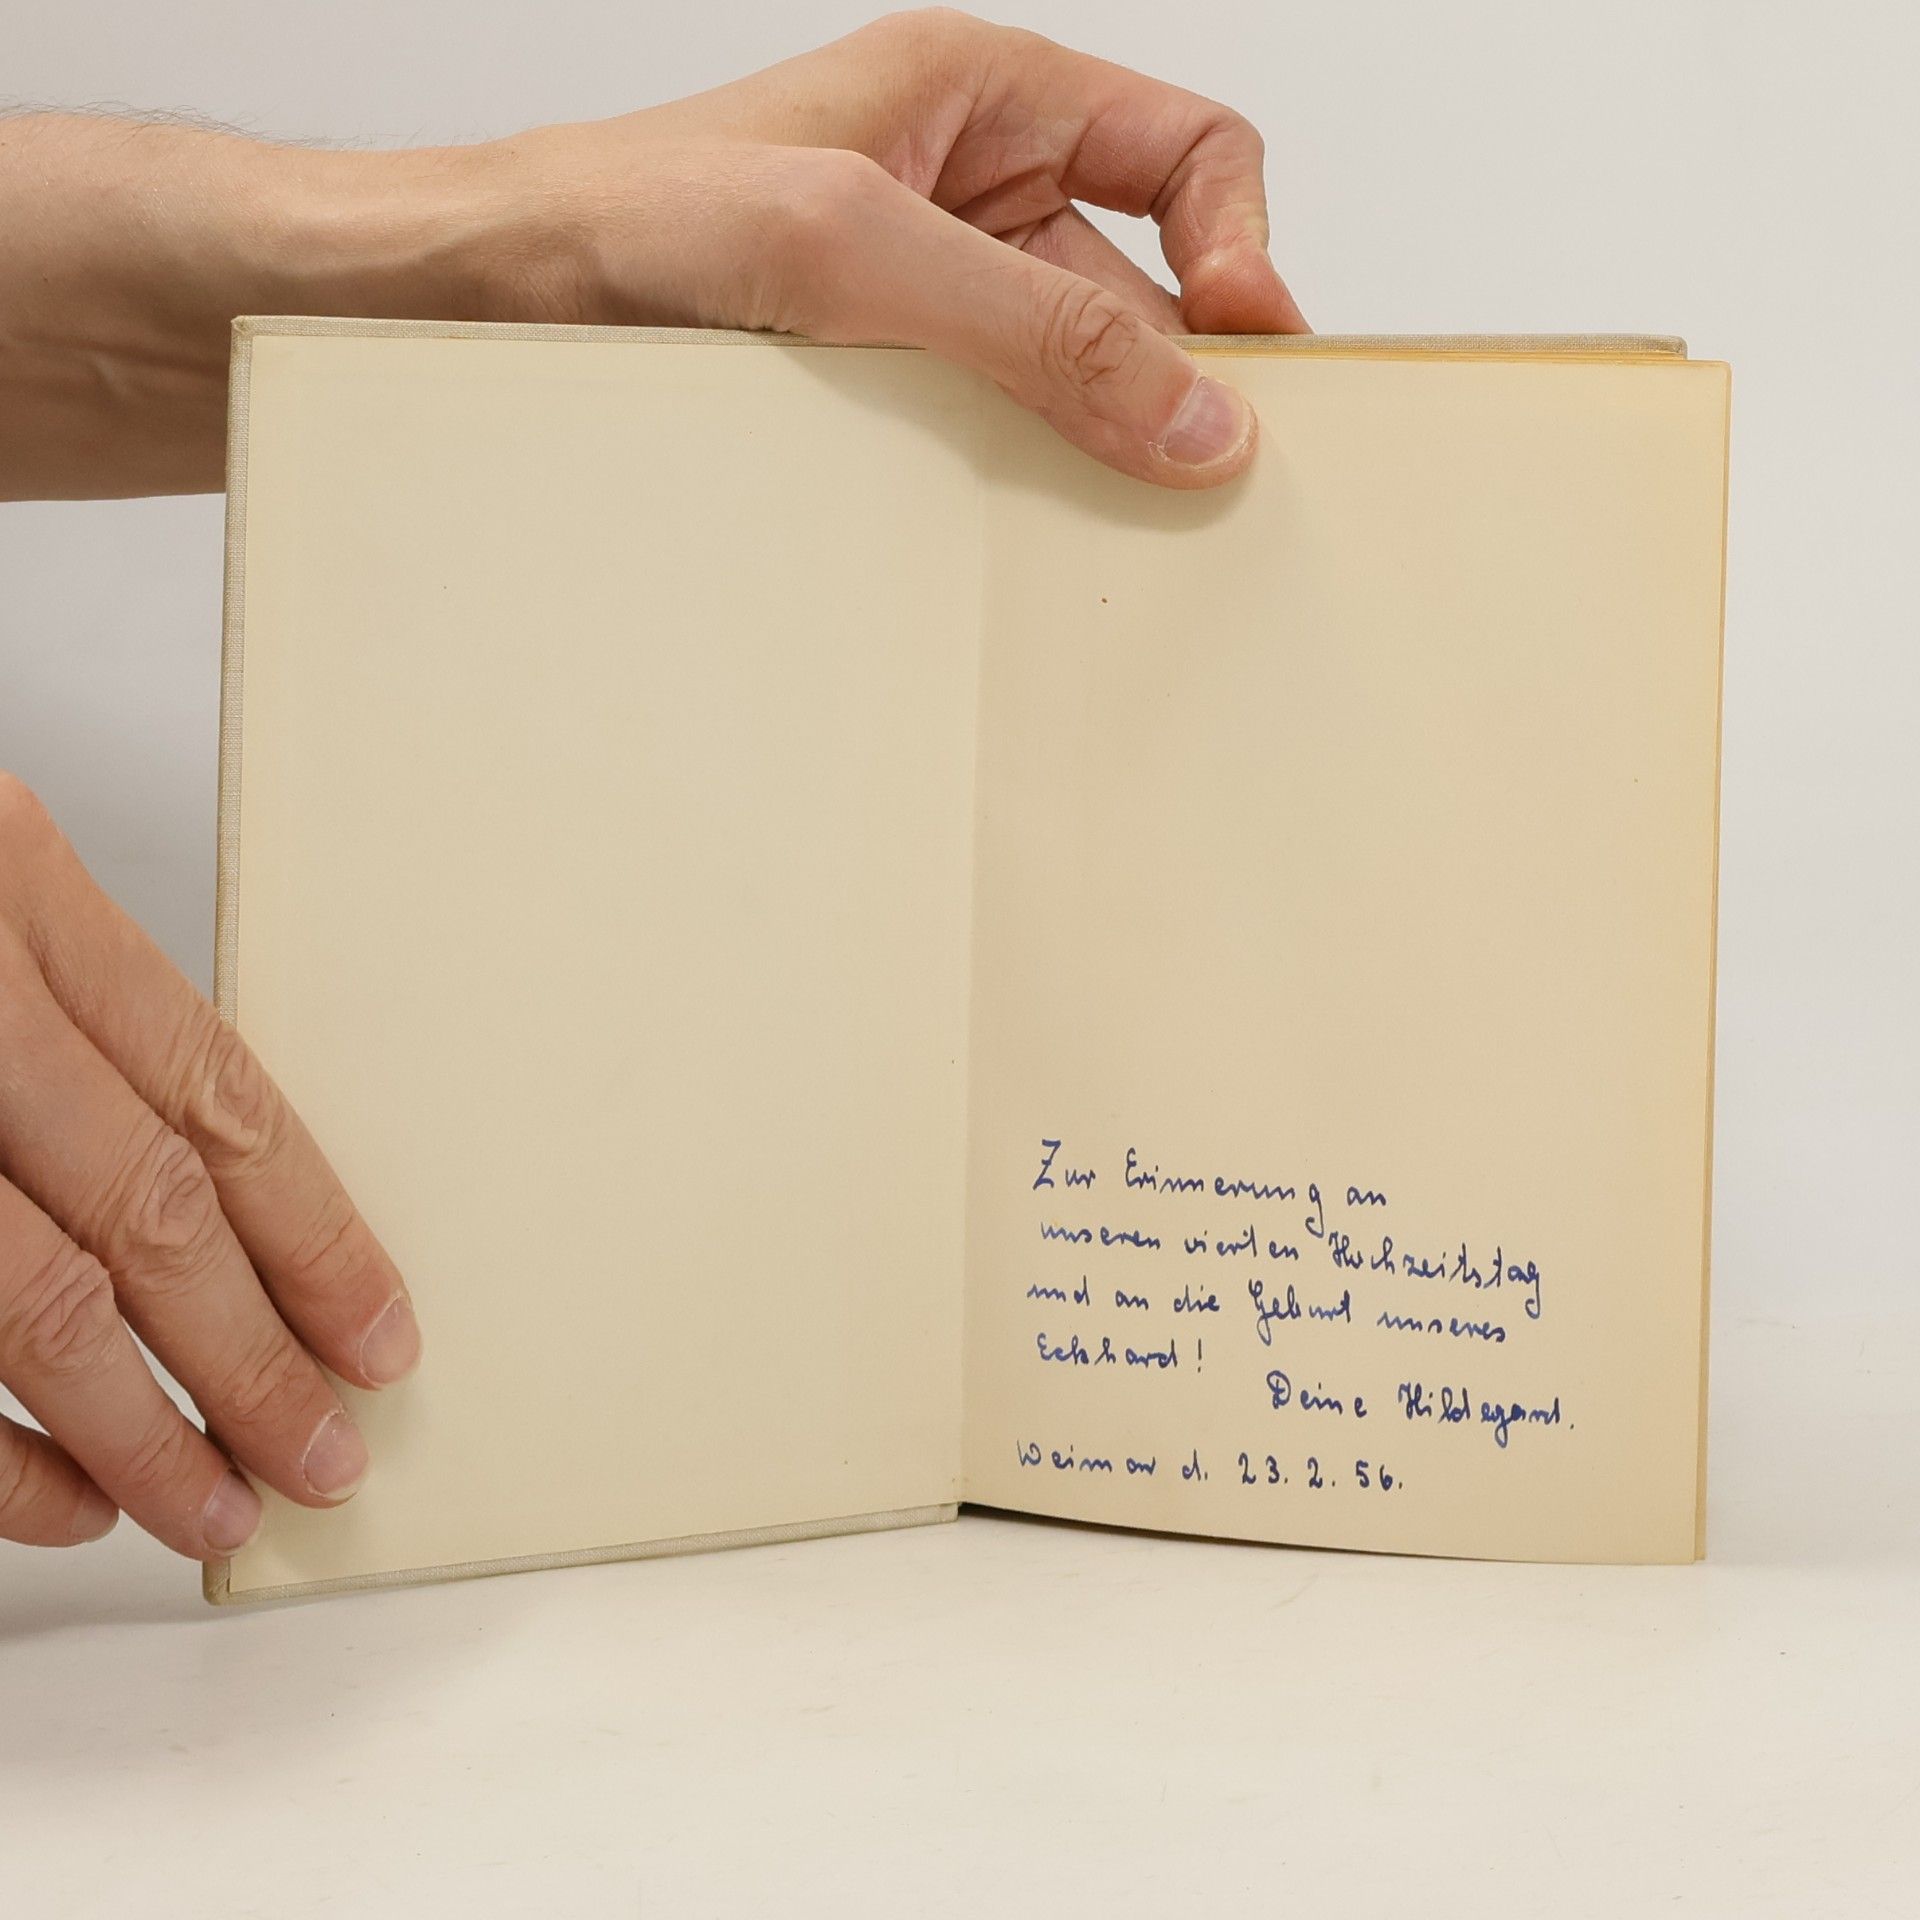 Zur Erinnerung an
unseren vierten Hochzeitstag
und an die Geburt unseres
Eckhard!
Deine Hildegard.
Weimar d. 23. 2. 56.